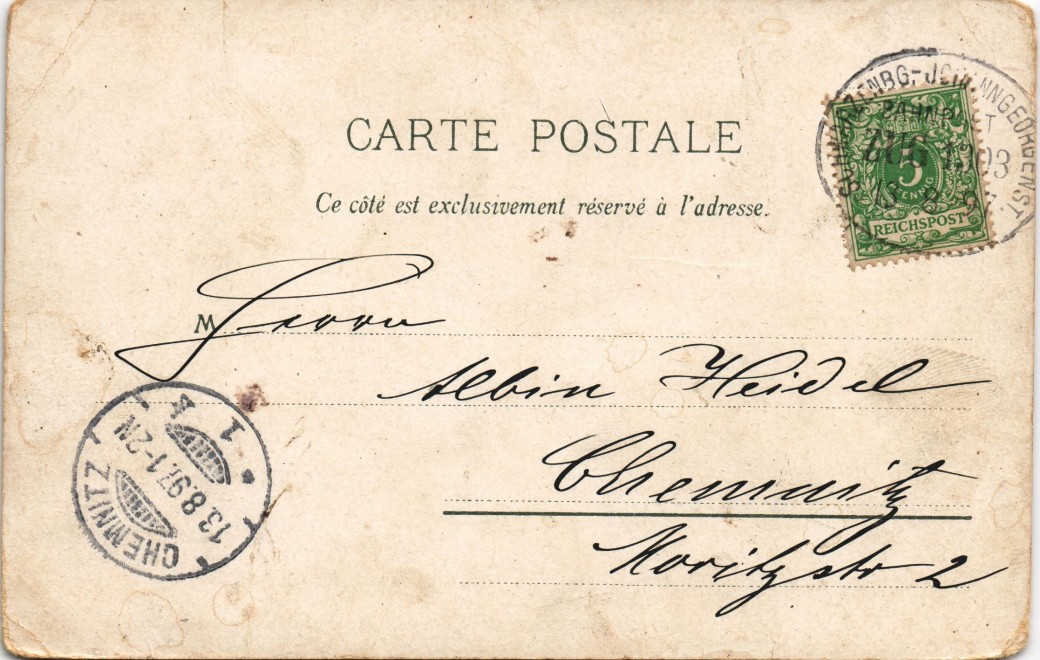 CARTE POSTALE
Ce côté est exclusivement réservé à l'adresse.
SCHWARZENBG.-JOHANNGEORGENST.
BAHNPOST
ZUG 1903
13 8 97
5
PFENNIG
REICHSPOST
M Herrn
Albin Heidel
Chemnitz
Moritzstr 2
CHEMNITZ
13.8.97. 1-2N.
1